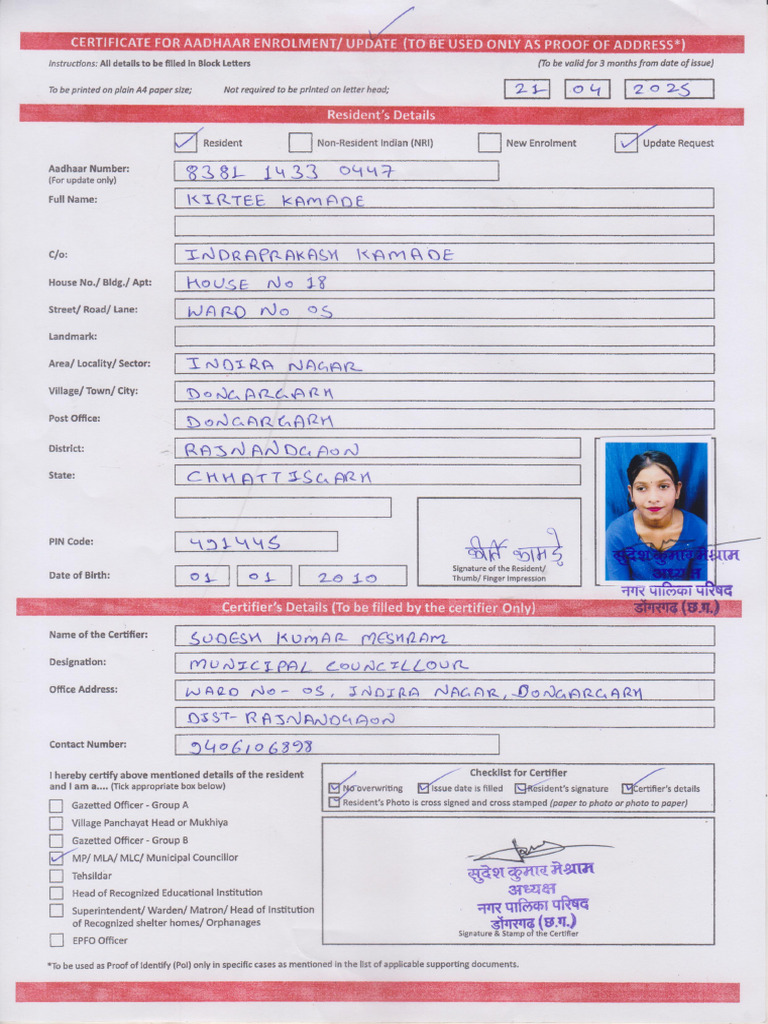 CERTIFICATE FOR AADHAAR ENROLMENT/ UPDATE (TO BE USED ONLY AS PROOF OF ADDRESS*)
Instructions: All details to be filled in Block Letters (To be valid for 3 months from date of issue)
To be printed on plain A4 paper size; Not required to be printed on letter head; 21 04 2025
Resident's Details
Resident Non-Resident Indian (NRI) New Enrolment Update Request
Aadhaar Number: 8381 1433 0447
(For update only)
Full Name: KIRTEE KAMADE
C/o: INDRAPRAKASH KAMADE
House No./ Bldg./ Apt: HOUSE No 18
Street/ Road/ Lane: WARD No 05
Landmark:
Area/ Locality/ Sector: INDIRA NAGAR
Village/ Town/ City: DONGARGARH
Post Office: DONGARGARH
District: RAJNANDGAON
State: CHHATTISGARH
PIN Code: 491445
कीर्ति कामड़े
Signature of the Resident/
Thumb/ Finger Impression
Date of Birth: 01 01 2010
सुदेश कुमार मेश्राम
अध्यक्ष
नगर पालिका परिषद
डोंगरगढ़ (छ.ग.)
Certifier's Details (To be filled by the certifier Only)
Name of the Certifier: SUDESH KUMAR MESHRAM
Designation: MUNICIPAL COUNCILLOUR
Office Address: WARD NO- 05, INDIRA NAGAR, DONGARGARH
DIST- RAJNANDGAON
Contact Number: 9406106898
I hereby certify above mentioned details of the resident
and I am a.... (Tick appropriate box below)
Checklist for Certifier
No overwriting Issue date is filled Resident's signature Certifier's details
Resident's Photo is cross signed and cross stamped (paper to photo or photo to paper)
Gazetted Officer - Group A
Village Panchayat Head or Mukhiya
Gazetted Officer - Group B
MP/ MLA/ MLC/ Municipal Councillor
Tehsildar
Head of Recognized Educational Institution
Superintendent/ Warden/ Matron/ Head of Institution
of Recognized shelter homes/ Orphanages
EPFO Officer
सुदेश कुमार मेश्राम
अध्यक्ष
नगर पालिका परिषद
डोंगरगढ़ (छ.ग.)
Signature & Stamp of the Certifier
*To be used as Proof of Identify (PoI) only in specific cases as mentioned in the list of applicable supporting documents.